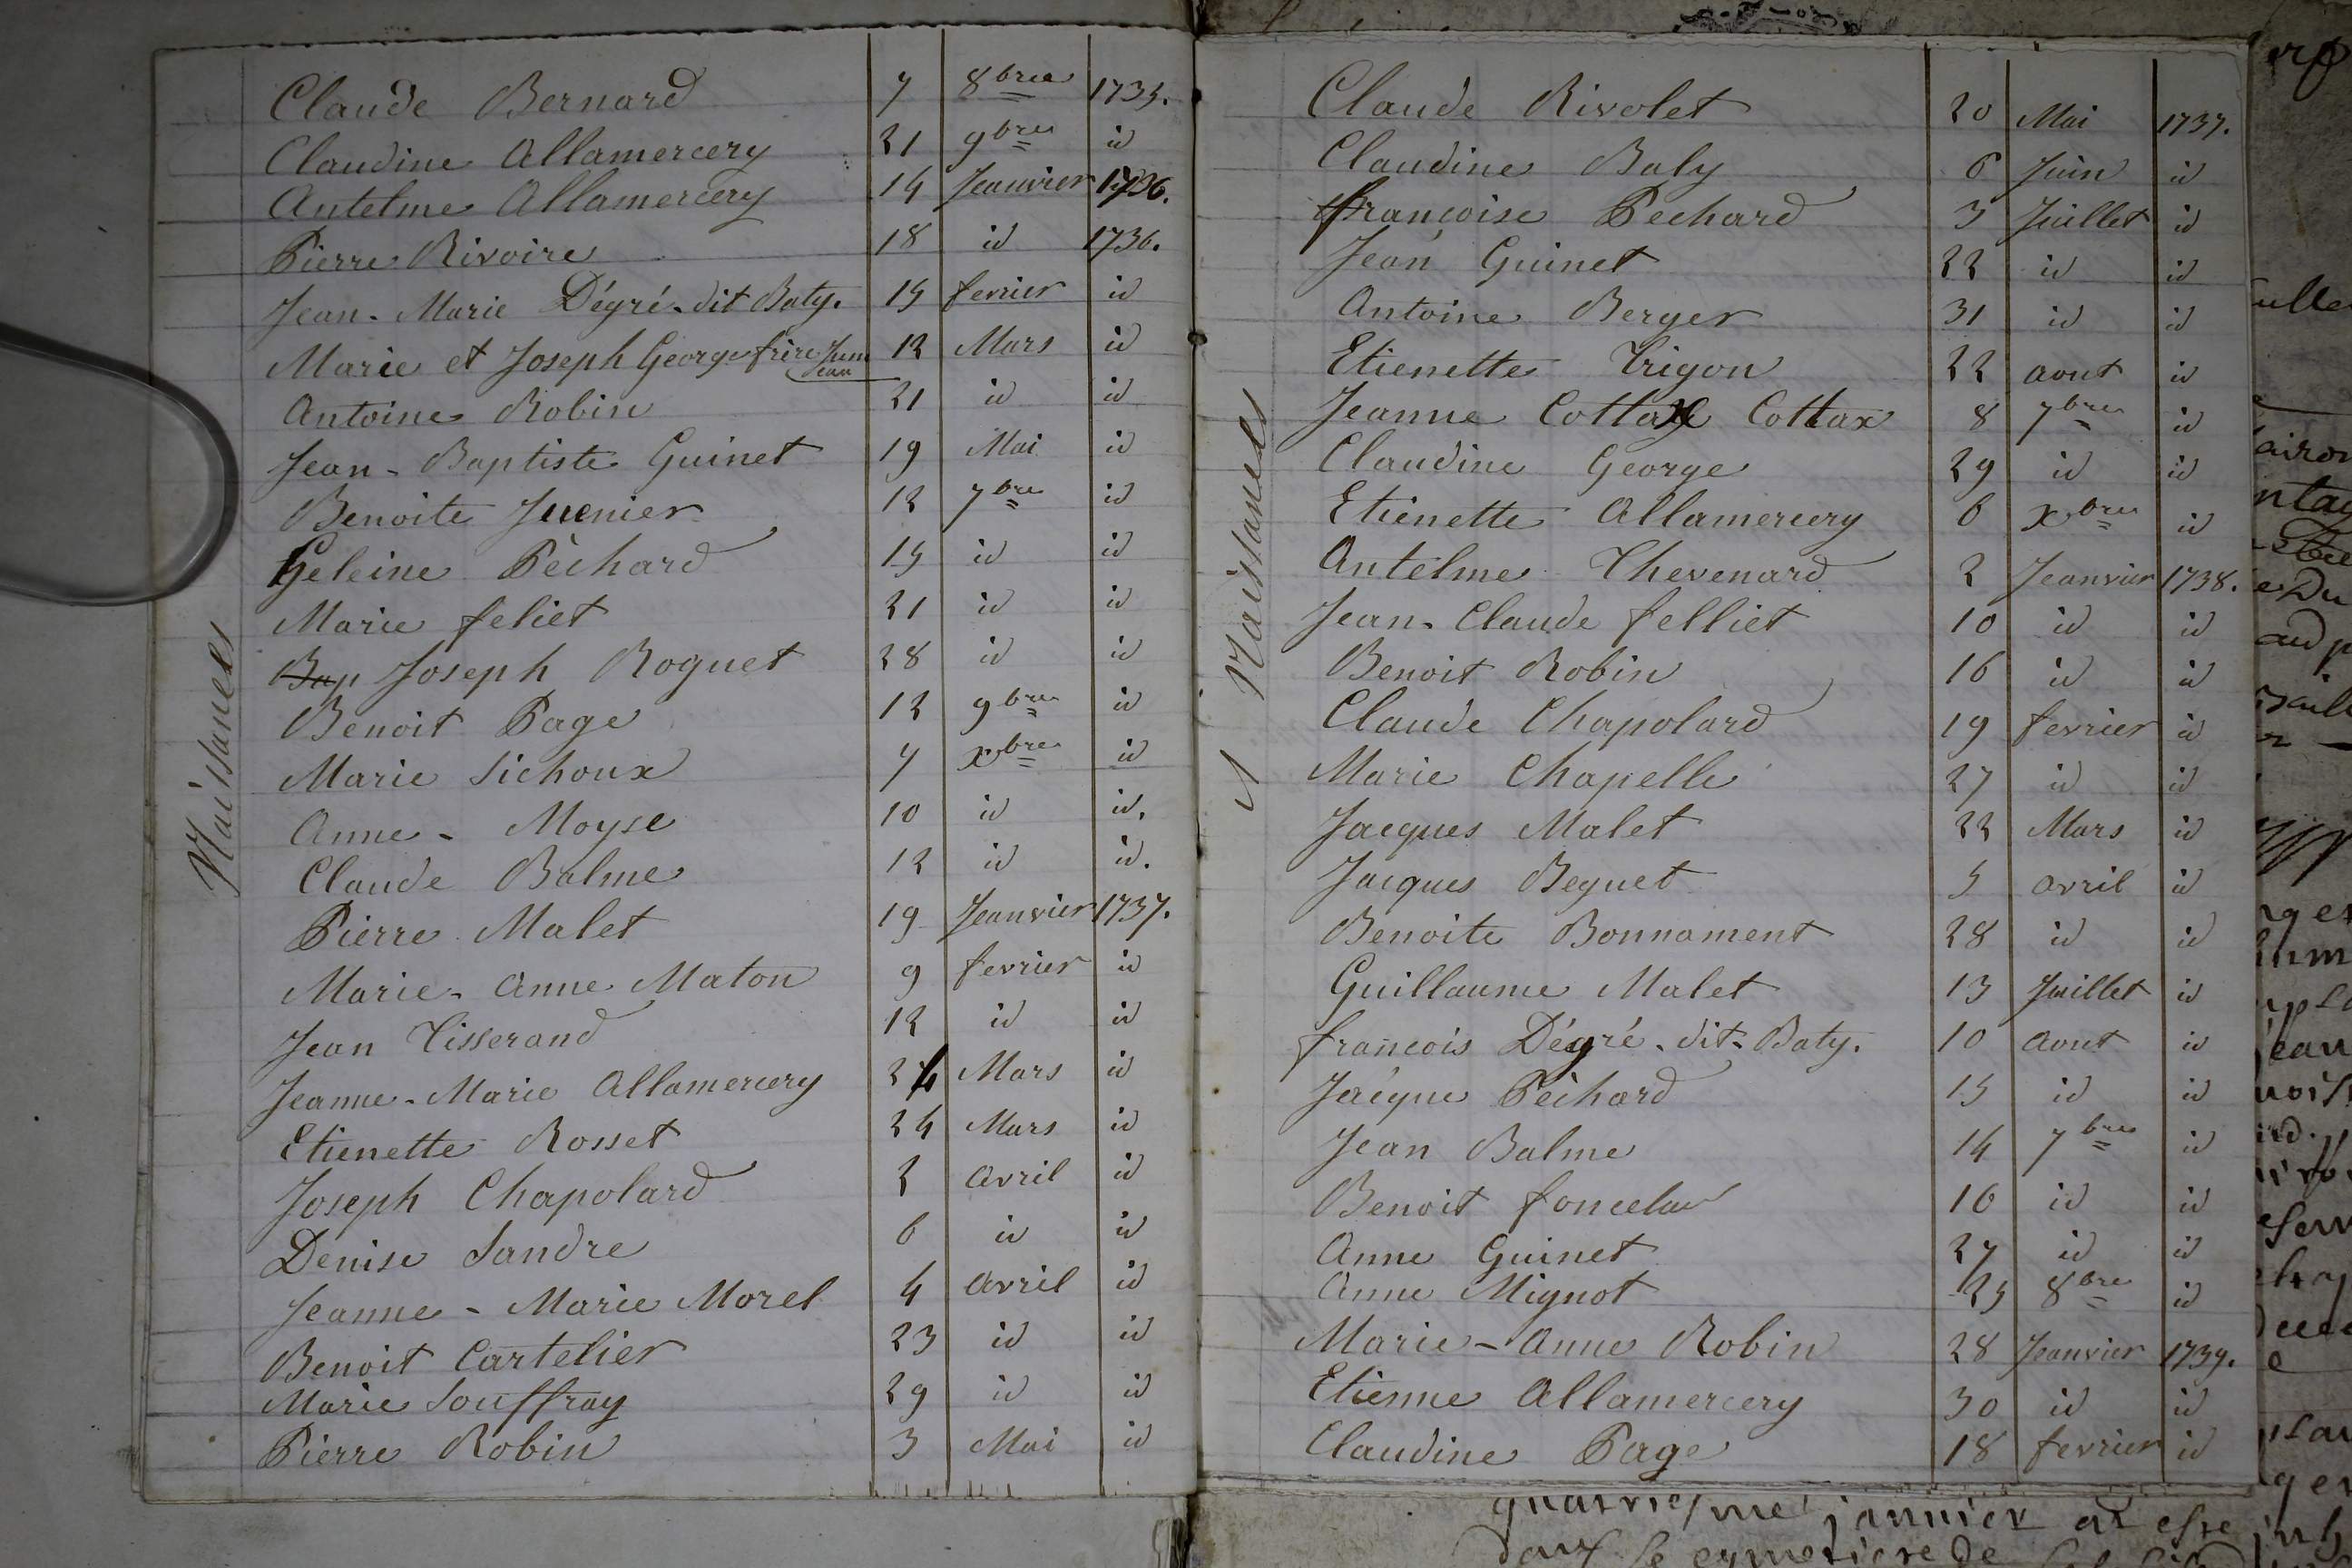 Naissances
Claude Bernard 7 8bre 1735.
Claudine Allamercery 21 9bre id
Antelme Allamercery 14 Jeanvier 1736.
Pierre Rivoire 18 id 1736.
Jean-Marie Dégré-dit Baty. 15 fevrier id
Marie et Joseph George frère Jumeau 12 Mars id
Antoine Robin 21 id id
Jean-Baptiste Guinet 19 Mai id
Benoite Juenier 12 7bre id
Geleine Pèchard 15 id id
Marie feliet 21 id id
Bap Joseph Roguet 28 id id
Benoit Page 12 9bre id
Marie Sichoux 7 xbre id
Anne - Moyse 10 id id.
Claude Balme 12 id id.
Pierre Malet 19 Jeanvier 1737.
Marie-Anne Maton 9 fevrier id
Jean Tisserand 12 id id
Jeanne-Marie Allamercery 24 Mars id
Etienette Rosset 24 Mars id
Joseph Chapolard 2 avril id
Denise Sandre 6 id id
Jeanne-Marie Morel 4 avril id
Benoit Cartelier 23 id id
Marie Souffray 29 id id
Pierre Robin 3 Mai id
Naissances
Claude Rivolet 20 Mai 1737.
Claudine Baly 6 Juin id
françoise Pechard 3 Juillet id
Jean Guinet 22 id id
Antoine Berger 31 id id
Etienette Trigon 22 aout id
Jeanne Cottax Cottax 8 7bre id
Claudine George 29 id id
Etienette Allamercery 6 xbre id
Antelme Thevenard 2 Jeanvier 1738.
Jean-Claude felliet 10 id id
Benoit Robin 16 id id
Claude Chapolard 19 fevrier id
Marie Chapelle 27 id id
Jacques Malet 22 Mars id
Jacques Beguet 5 avril id
Benoite Bonnament 28 id id
Guillaume Malet 13 Juillet id
françois Dégré-dit-Baty. 10 aout id
Jacque Pèchard 15 id id
Jean Balme 14 7bre id
Benoit 16 id id
Anne Guinet 27 id id
Anne Mignot 25 8bre id
Marie-Anne Robin 28 Jeanvier 1739.
Etienne Allamercery 30 id id
Claudine Page 18 fevrier id